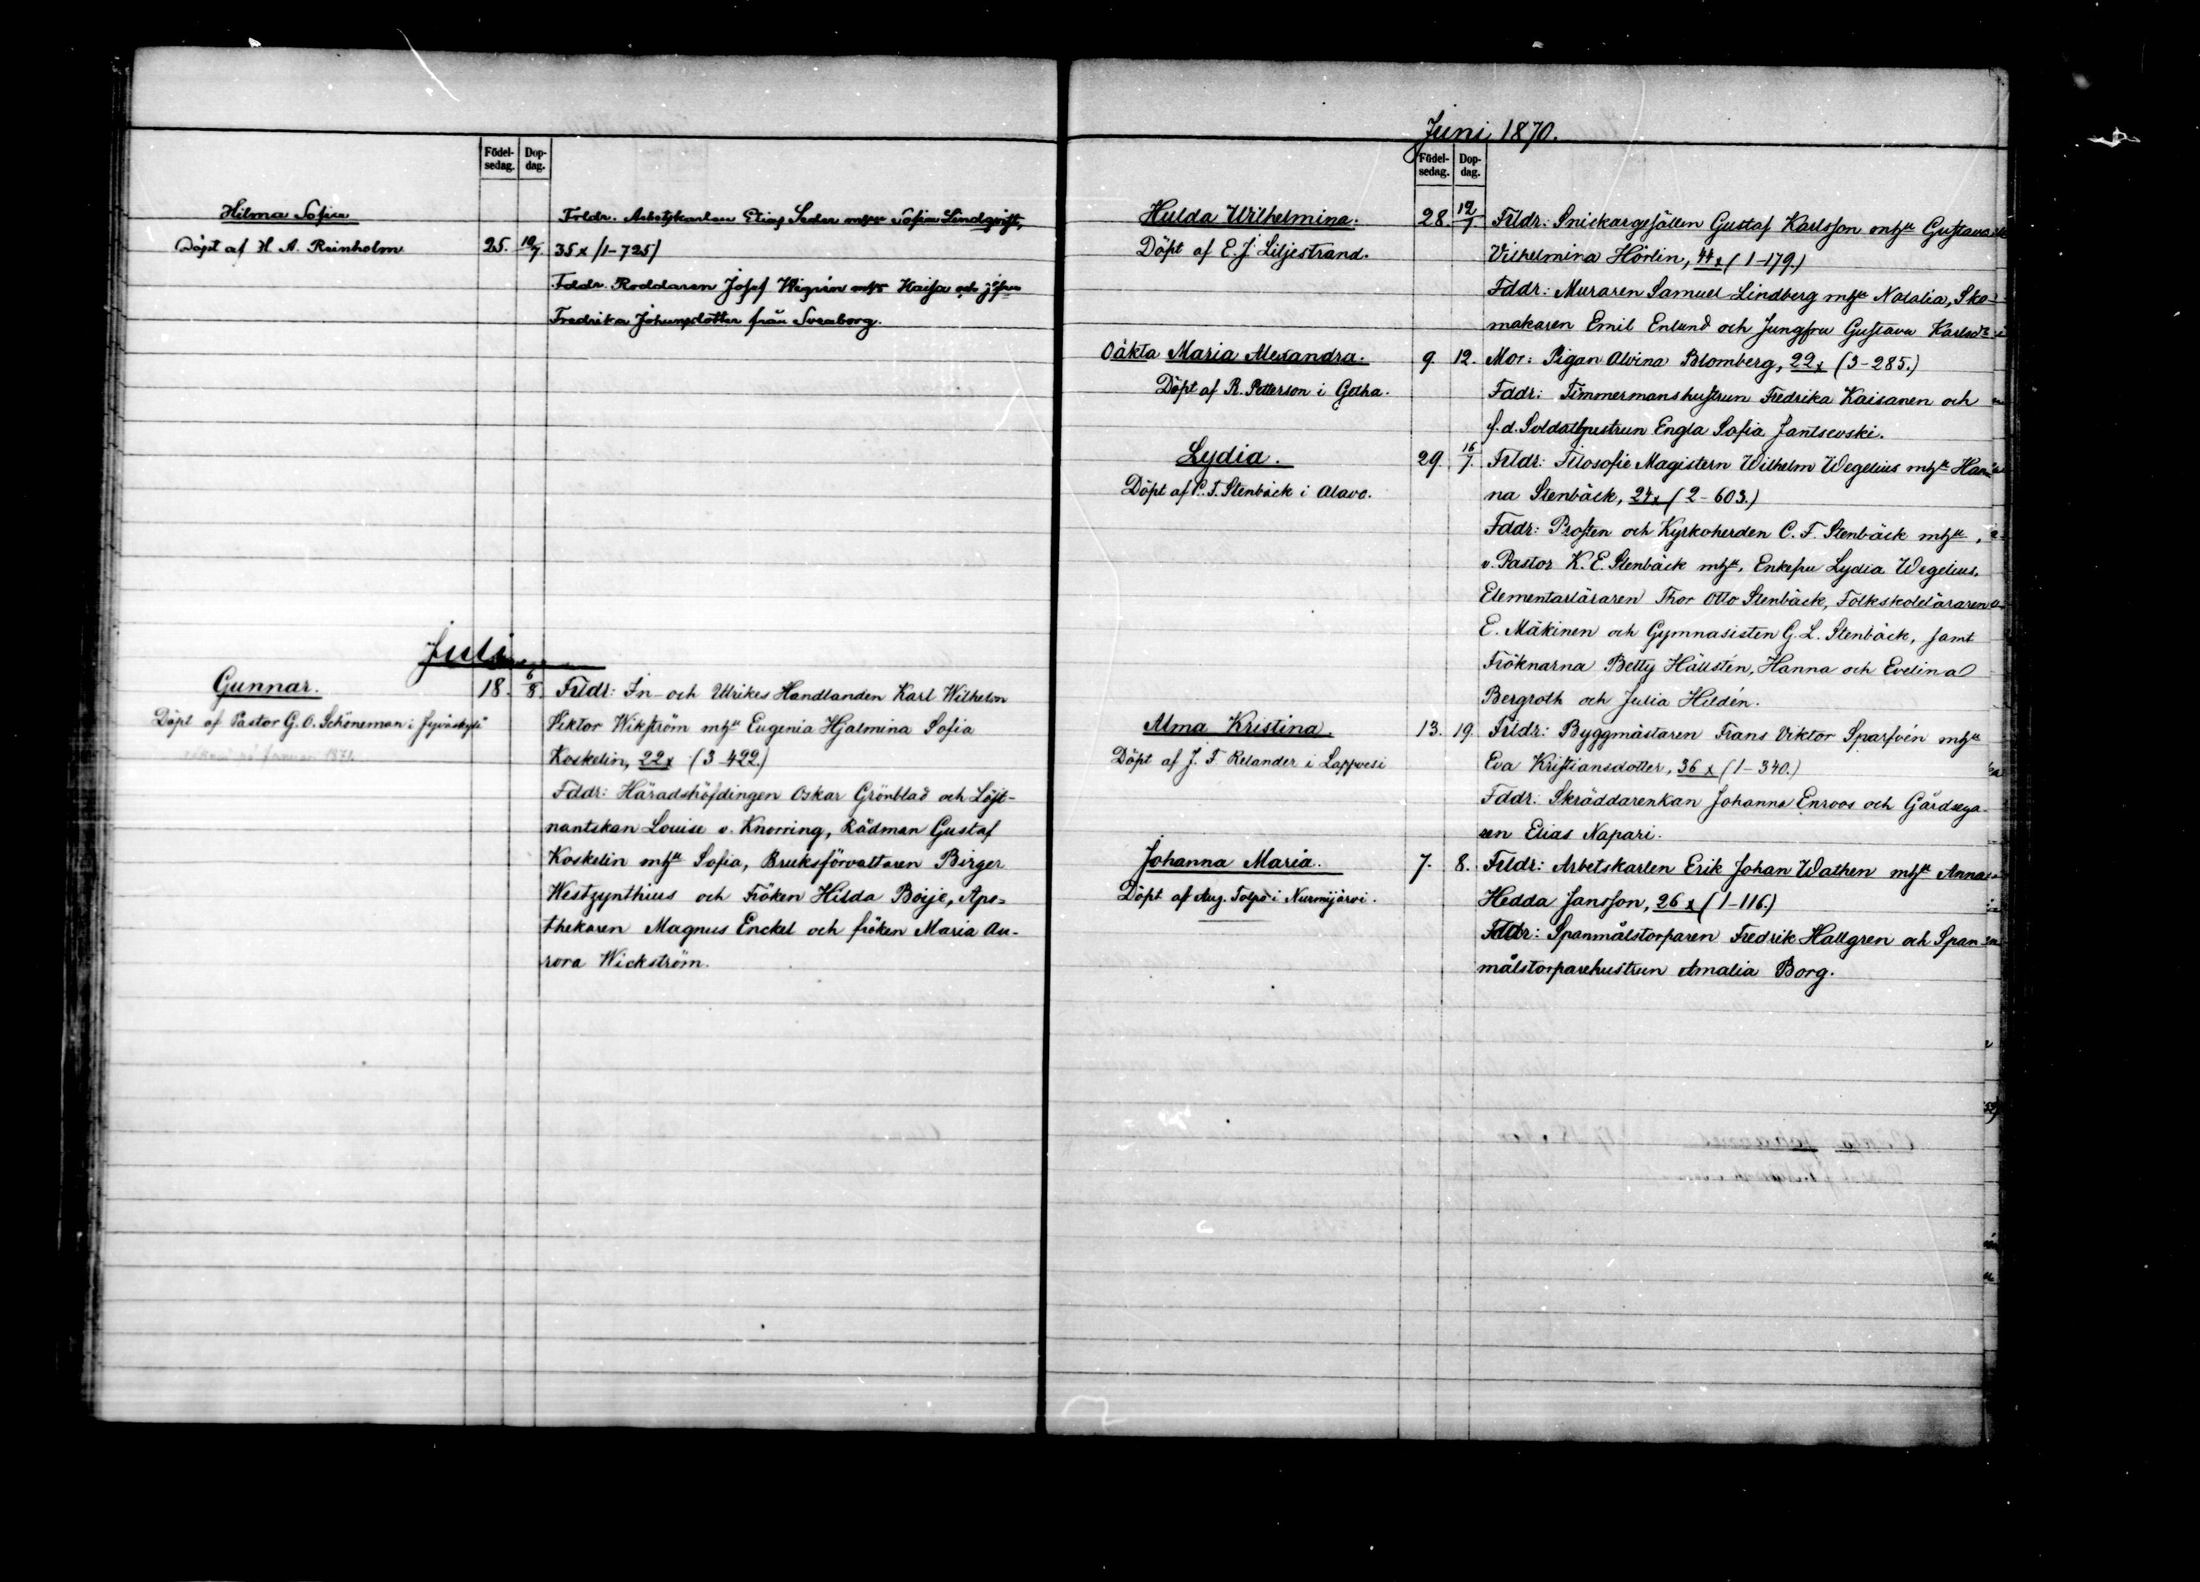 Födel-
sedag.
Dop-
dag.
Hilma Sofia
Döpt af H. A. Reinholm
25. 10/7
Frldr. Arbetskarlen Elias Seder mhu Sofia Lindqvist,
35 x (1-725)
Fddr. Roddaren Josef Wigrén mhu Kaisa och jgfrun
Fredrika Johansdotter från Sveaborg.
Juli
Gunnar.
Döpt af Pastor G. O. Schöneman i Jyväskylä
1871.
18. 6/8
Frldr: In- och Utrikes Handlanden Karl Wilhelm
Viktor Wikström mhu Eugenia Hjalmina Sofia
Koskelin, 22 x (3-422.)
Fddr: Häradshöfdingen Oskar Grönblad och Löjt-
nantskan Louise v. Knorring, Rådman Gustaf
Koskelin mhu Sofia, Bruksförvaltaren Birger
Westzynthius och Fröken Hilda Boije, Apo-
thekaren Magnus Enckel och fröken Maria Au-
rora Wickström.
Juni 1870.
Födel-
sedag.
Dop-
dag.
Hulda Wilhelmina.
Döpt af E. J. Liljestrand.
28. 12/7
Frldr: Snickargesällen Gustaf Karlsson mhu Gustava
Vilhelmina Hörlin, 44 x (1-179.)
Fddr: Muraren Samuel Lindberg mhu Natalia, Sko-
makaren Emil Enlund och Jungfru Gustava Karlsdr
Oäkta Maria Alexandra.
Döpt af R. Petterson i Gotha.
9. 12.
Mor: Pigan Alvina Blomberg, 22 x (3-285.)
Fddr: Timmermanshustrun Fredrika Kaisanen och
f.d. Soldathustrun Engla Sofia Jantsevski.
Lydia.
Döpt af C. F. Stenbäck i Alavo.
29. 16/7.
Frldr: Filosofie Magistern Wilhelm Wegelius mhu Han-
na Stenbäck, 24 x (2-603.)
Fddr: Prosten och Kyrkoherden C. F. Stenbäck mhu,
v. Pastor K. E. Stenbäck mhu, Enkefru Lydia Wegelius,
Elementarläraren Thor Otto Stenbäck, Folkskoleläraren
E. Mäkinen och Gymnasisten G. L. Stenbäck, samt
Fröknarna Betty Hällstén, Hanna och Evelina
Bergroth och Julia Hildén.
Alma Kristina.
Döpt af J. F. Relander i Lappvesi
13. 19.
Frldr: Byggmästaren Frans Viktor Sparfvén mhu
Eva Kristiansdotter, 36 x (1-340.)
Fddr: Skräddarenkan Johanna Enroos och Gårdsega-
ren Elias Napari.
Johanna Maria.
Döpt af Aug. Tolpo i Nurmijärvi.
7. 8.
Frldr: Arbetskarlen Erik Johan Wathen mhu Anna
Hedda Jansson, 26 x (1-116.)
Fddr: Spanmålstorparen Fredrik Hallgren och Span-
målstorparehustrun Amalia Borg.